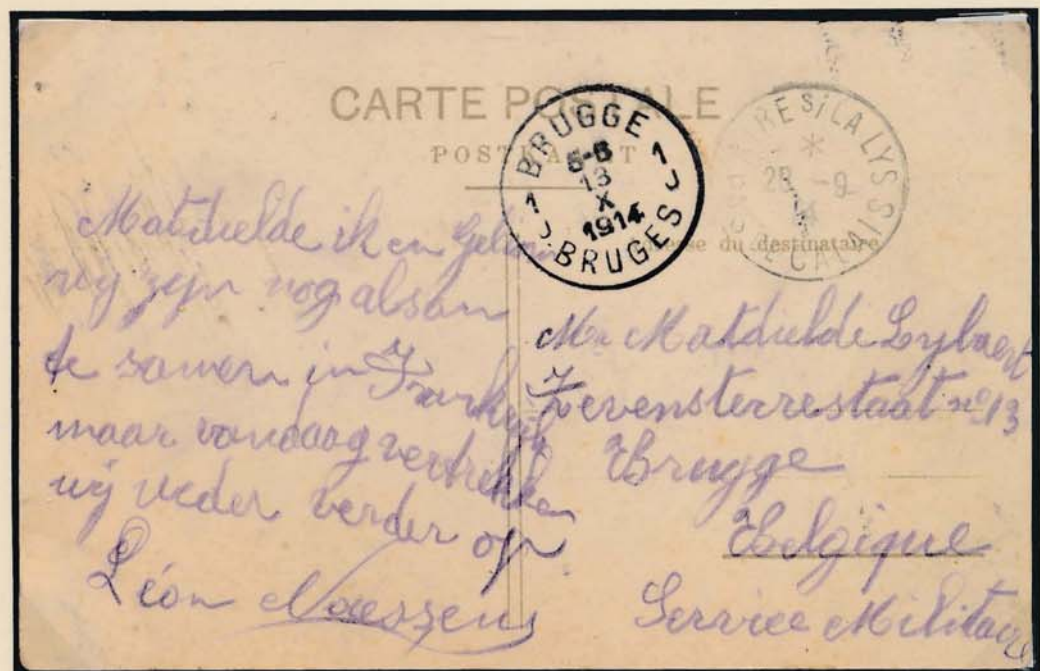 CARTE POSTALE
POSTKAART
BRUGGE
5-6
13
X
1914
1 1
BRUGES
AIRE S/ LA LYS
*
28 -9
14
PAS DE CALAIS
Adresse du destinataire
Matduelde ik en
wij zijn nog alsan
te samen in Frankrijk
maar vandaag vertrekken
wij weder verder op
Léon Naessens
Me Matduelde Lybaert
Zevensterrestaat nº 13
Brugge
Belgique
Service Militaire